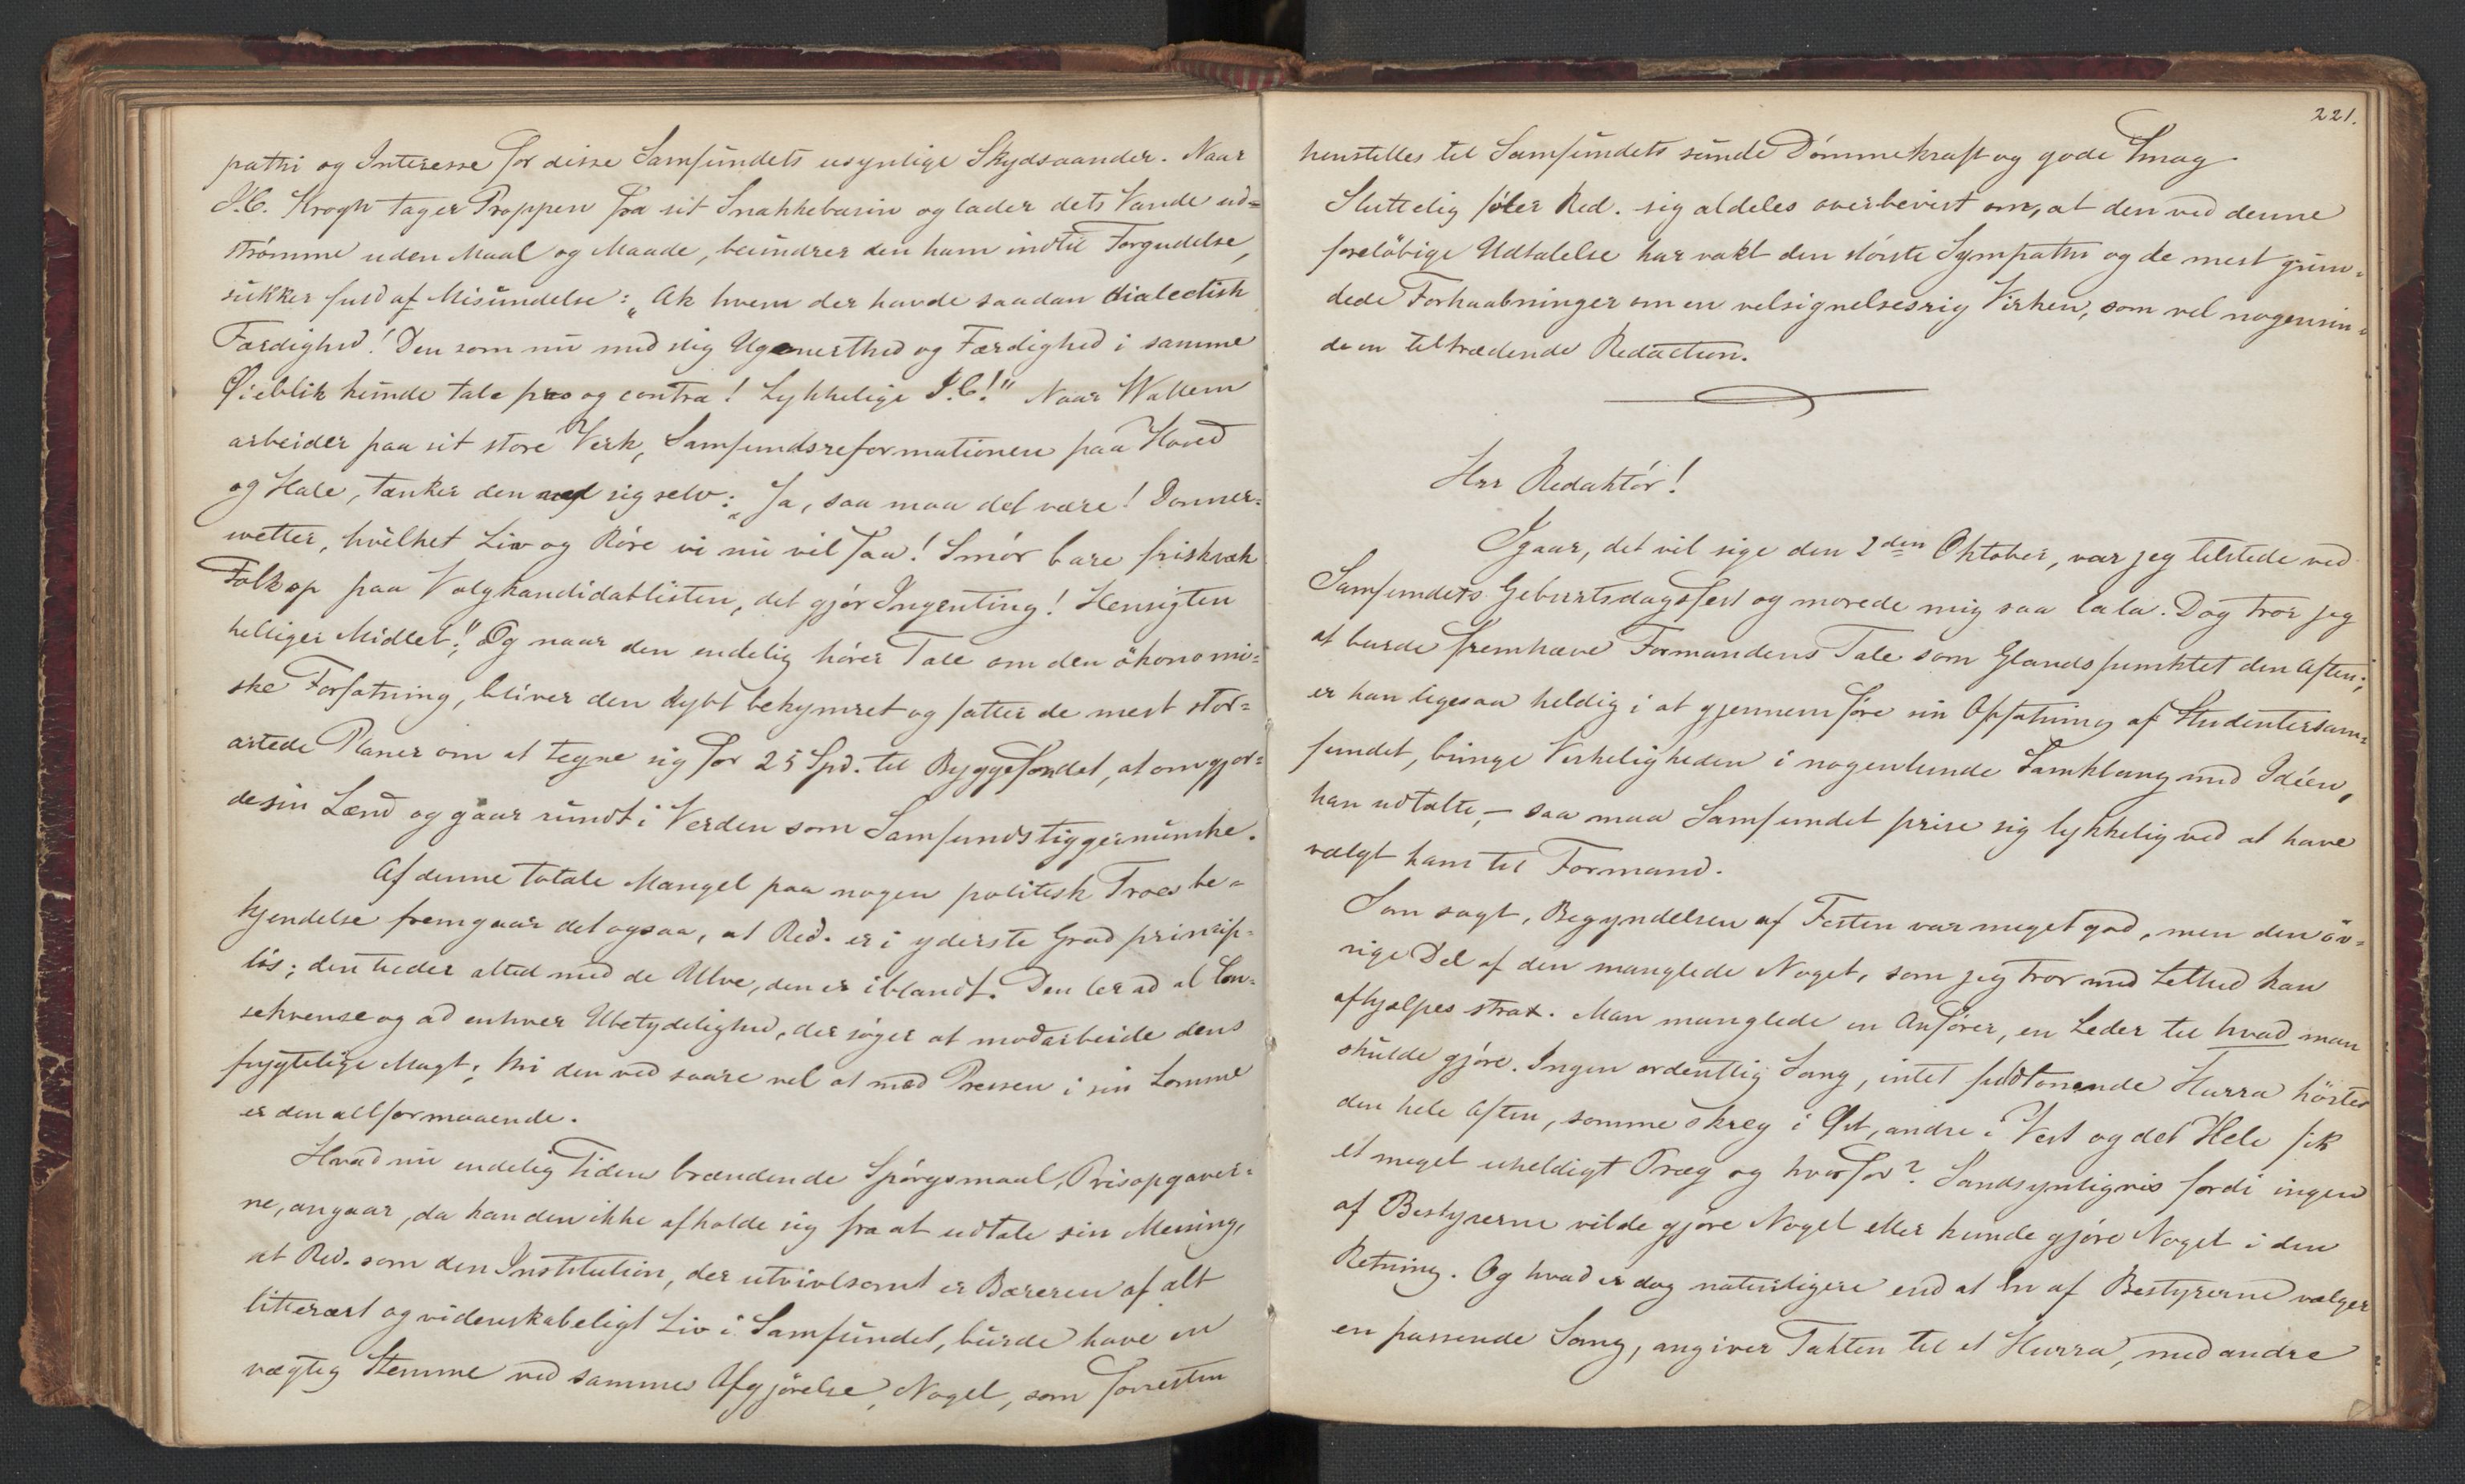 pathi og Interesse for disse Samfundets usynlige Skydsaander. Naar
J.C. Krogh tager Proppen fra sit Snakkebasin og lader dets Vande ud=
strömme uden Maal og Maade, beundrer den ham indtil Forgudelse,
sukker fuld af Misundelse: „Ak hvem der havde saadan dialectisk
Færdighed! Den som nu med slig Ugenerthed og Færdighed i samme
Øieblik kunde tale pro og contra! Lykkelige J.C!" Naar Wallem
arbeider paa sit store Verk, Samfundsreformationen paa Hoved
og Hale, tænker den ved sig selv: „Ja, saa maa det være! Donner=
wetter, hvilket Liv og Röre vi nu vil faa! Smör bare friskvæk
Folk op paa Valgkandidatlisten, det gjör Ingenting! Hensigten
helliger Midlet!" Og naar den endelig hörer Tale om den ökonomi=
ske Forfatning, bliver den dybt bekymret og fatter de mest stor=
artede Planer om at tegne sig for 25 Spd. til Byggefondet, at omgjor=
de sin Lænd og gaar rundt i Verden som Samfundstiggermunke.
Af denne totale Mangel paa nogen politisk Troesbe=
kjendelse fremgaar det ogsaa, at Red. er i yderste Grad prinsip=
lös; den tuder altid med de Ulve, den er iblandt. Den ler ad al Con=
sekvense og ad enhver Ubetydelighed, der söger at modarbeide dens
frygtelige Magt; thi den ved saare vel at med Pressen i sin Lomme
er den altformaaende.
Hvad nu endelig Tidens brændende Spörgsmaal, Prisopgaver=
ne, angaar, da kan den ikke afholde sig fra at udtale sin Mening,
at Red. som den Institution, der utvivlsomt er Bæreren af alt
litterært og videnskabeligt Liv i Samfundet, burde have en
vægtig Stemme ved sammes Afgjörelse, Noget, som forresten
221.
henstilles til Samfundets sunde Dömmekraft og gode Smag.
Sluttelig föler Red. sig aldeles overbevist om, at den ved denne
forelöbige Udtalelse har vakt den störste Sympathi og de mest grun=
dede Forhaabninger om en velsignelsesrig Virken, som vel nogensin=
de en tiltrædende Redaction.
Herr Redaktör!
Igaar, det vil sige den 2den Oktober, var jeg tilstede ved
Samfundets Geburtsdagsfest og morede mig saa lala. Dog tror jeg
at burde fremhæve Formandens Tale som Glandspunktet den Aften;
er han ligesaa heldig i at gjennemföre sin Opfatning af Studentersam=
fundet, bringe Virkeligheden i nogenlunde Samklang med Idéen,
han udtalte, – saa maa Samfundet prise sig lykkelig ved at have
valgt ham til Formand.
Som sagt, Begyndelsen af Festen var meget god, men den öv=
rige Del af den manglede Noget, som jeg tror med Lethed kan
afhjælpes strax. Man manglede en Anförer, en Leder til hvad man
skulde gjöre. Ingen ordentlig Sang, intet fuldtonende Hurra hörtes
den hele Aften, somme skreg i Öst, andre i Vest og det Hele fik
et meget uheldigt Præg og hvorfor? Sandsynligvis fordi ingen
af Bestyrerne vilde gjöre Noget eller kunde gjöre Noget i den
Retning. Og hvad er dog naturligere end at En af Bestyrerne vælger
en passende Sang, angiver Takten til et Hurra, med andre